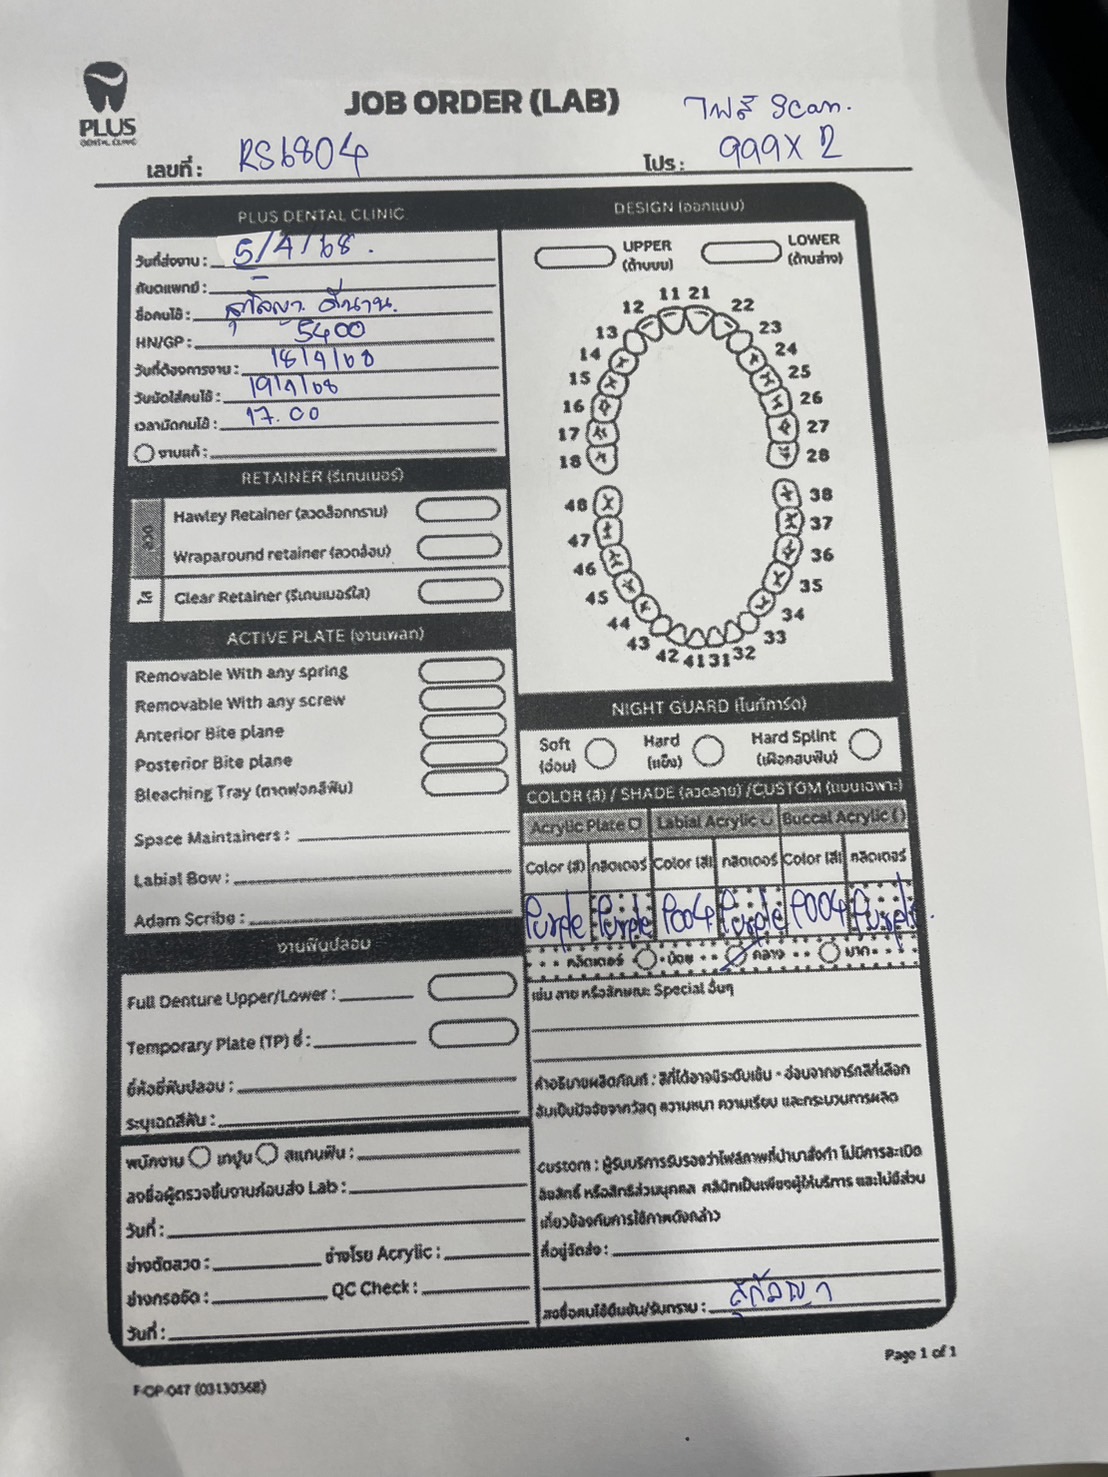 PLUS
DENTAL CLINIC
JOB ORDER (LAB)
ไฟล์ Scan.
เลขที่ : RS6804
โปร : 999 x 2
PLUS DENTAL CLINIC
วันที่ส่งงาน : 5/4/68.
ทันตแพทย์ :
ชื่อคนไข้ : สุกัลญา
HN/GP : 5400
วันที่ต้องการงาน : 18/4/68
วันนัดใส่คนไข้ : 19/4/68
เวลานัดคนไข้ : 17.00
งานแก้ :
RETAINER (รีเทนเนอร์)
ลวด
Hawley Retainer (ลวดล็อกกราม)
Wraparound retainer (ลวดอ้อม)
ใส
Clear Retainer (รีเทนเนอร์ใส)
ACTIVE PLATE (งานเพลท)
Removable With any spring
Removable With any screw
Anterior Bite plane
Posterior Bite plane
Bleaching Tray (ถาดฟอกสีฟัน)
Space Maintainers :
Labial Bow :
Adam Scribe :
งานฟันปลอม
Full Denture Upper/Lower :
Temporary Plate (TP) ซี่ :
ยี่ห้อซี่ฟันปลอม :
ระบุเฉดสีฟัน :
พนักงาน เทปูน สแกนฟัน :
ลงชื่อผู้ตรวจชิ้นงานก่อนส่ง Lab :
วันที่ :
ช่างดัดลวด : ช่างโรย Acrylic :
ช่างกรอขัด : QC Check :
วันที่ :
DESIGN (ออกแบบ)
UPPER (ด้านบน)
LOWER (ด้านล่าง)
11 21
12 22
13 23
14 24
15 25
16 26
17 27
18 28
48 38
47 37
46 36
45 35
44 34
43 33
42 41 31 32
NIGHT GUARD (ไนท์การ์ด)
Soft (อ่อน)
Hard (แข็ง)
Hard Splint (เฝือกสบฟัน)
COLOR (สี) / SHADE (ลวดลาย) /CUSTOM (แบบเฉพาะ)
Acrylic Plate Labial Acrylic Buccal Acrylic
Color (สี) กลิตเตอร์ Color (สี) กลิตเตอร์ Color (สี) กลิตเตอร์
Purple Purple P004 Purple P004 Purple.
กลิตเตอร์ น้อย กลาง มาก
เช่น ลาย หรือลักษณะ Special อื่นๆ
คำอธิบายผลิตภัณฑ์ : สีที่ได้อาจมีระดับเข้ม - อ่อนจากชาร์ทสีที่เลือก
อันเป็นปัจจัยจากวัสดุ ความหนา ความเรียบ และกระบวนการผลิต
custom : ผู้รับบริการรับรองว่าไฟล์ภาพที่นำมาสั่งทำ ไม่มีการละเมิด
ลิขสิทธิ์ หรือสิทธิส่วนบุคคล คลินิกเป็นเพียงผู้ให้บริการ และไม่มีส่วน
เกี่ยวข้องกับการใช้ภาพดังกล่าว
ที่อยู่จัดส่ง :
ลงชื่อคนไข้ยืนยัน/รับทราบ : สุกัลญา
Page 1 of 1
F-OP-047 (03130368)